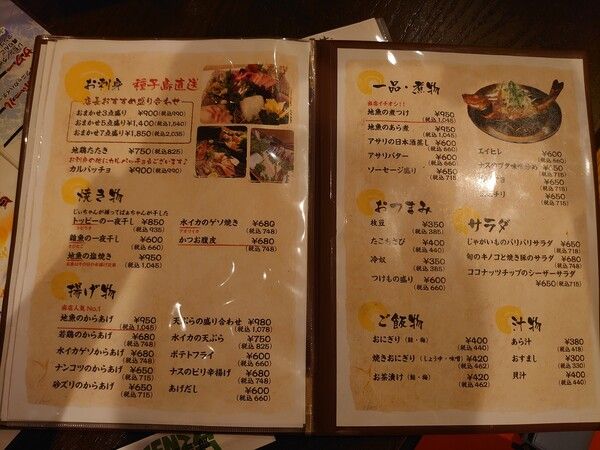 お刺身 種子島直送
店長おすすめ盛り合わせ
おまかせ3点盛り ¥900(税込990)
おまかせ5点盛り ¥1,400(税込1,540)
おまかせ7点盛り ¥1,850(税込2,035)
地鶏たたき ¥750(税込825)
お刺身の他にカルパッチョもございます♪
カルパッチョ ¥900(税込990)
焼き物
じぃちゃんが捕ってばぁちゃんが干した
トッピーの一夜干し ¥850
(税込 935)
雑魚の一夜干し ¥600
(税込 660)
地魚の塩焼き ¥950
(税込 1,045)
水イカのゲソ焼き ¥680
(税込 748)
かつお腹皮 ¥680
(税込 748)
揚げ物
当店人気 No.1
地魚のからあげ ¥950
(税込 1,045)
若鶏のからあげ ¥680
(税込 748)
水イカゲソからあげ ¥680
(税込 748)
ナンコツのからあげ ¥650
(税込 715)
砂ズリのからあげ ¥650
(税込 715)
天ぷらの盛り合わせ ¥980
(税込 1,078)
水イカの天ぷら ¥750
(税込 825)
ポテトフライ ¥600
(税込 660)
ナスのピリ辛揚げ ¥680
(税込 748)
あげだし ¥600
(税込 660)
一品・煮物
当店イチオシ!!
地魚の煮つけ ¥950
(税込 1,045)
地魚のあら煮 ¥950
(税込 1,045)
アサリの日本酒蒸し ¥600
(税込 660)
アサリバター ¥600
(税込 660)
ソーセージ盛り ¥650
(税込 715)
エイヒレ ¥600
(税込 660)
¥650
(税込 715)
¥650
(税込 715)
おつまみ
枝豆 ¥350
(税込 385)
たこわさび ¥400
(税込 440)
冷奴 ¥350
(税込 385)
つけもの盛り ¥600
(税込 660)
サラダ
じゃがいものパリパリサラダ ¥650
(税込 715)
旬のキノコと焼き豚のサラダ ¥680
(税込 748)
ココナッツチップのシーザーサラダ
¥650(税込 715)
ご飯物
おにぎり(鮭・梅) ¥400
(税込 440)
焼きおにぎり(しょうゆ・味噌) ¥420
(税込 462)
お茶漬け(鮭・梅) ¥420
(税込 462)
汁物
あら汁 ¥380
(税込 418)
おすまし ¥300
(税込 330)
貝汁 ¥400
(税込 440)